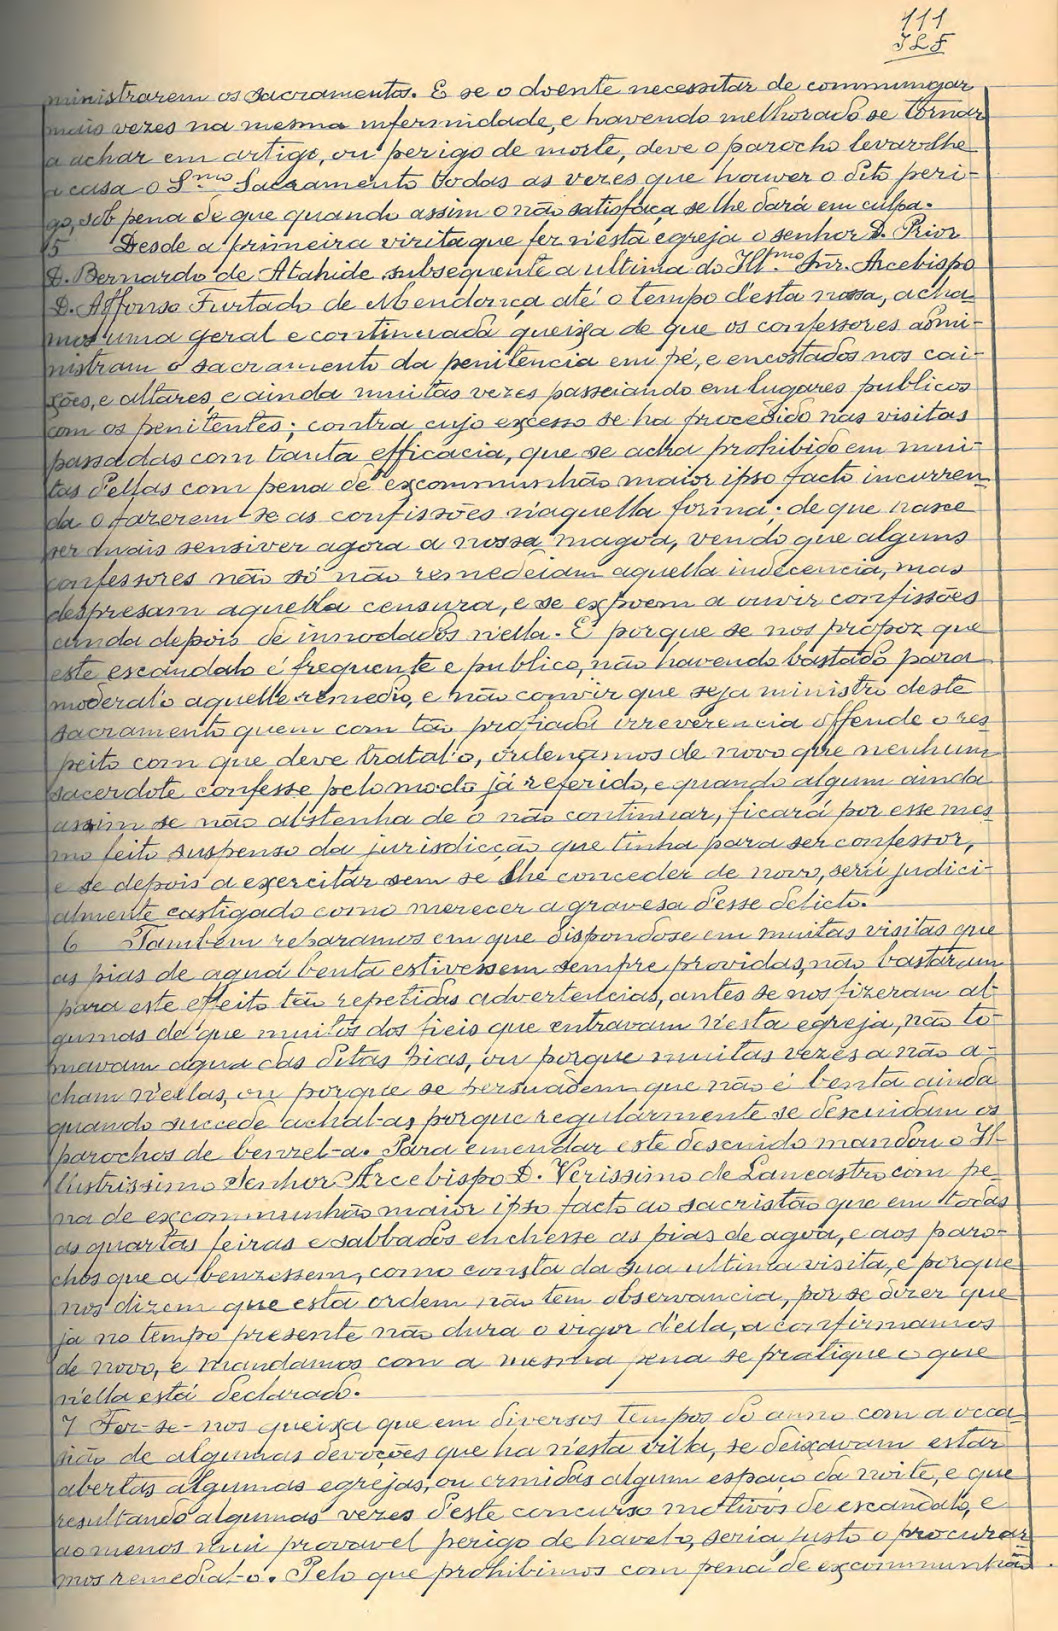 111
JLF
ministrarem os sacramentos. E se o doente necessitar de commungar
mais vezes na mesma infermidade, e havendo melhorado se tornar
a achar em artigo, ou perigo de morte, deve o parocho levarolhe
a casa o S.mo Sacramento todas as vezes que houver o dito peri-
go, sob pena de que quando assim o não satisfaça se lhe dará em culpa.
5 Desde a primeira visita que fez n'esta egreja o senhor D. Prior
D. Bernardo de Atahide subsequente a ultima do Ill.mo Snr. Arcebispo
D. Affonso Furtado de Mendonça até o tempo d'esta nossa, acha-
mos uma geral e continuada queixa de que os confessores admi-
nistram o sacramento da penitencia em pé, e encostados nos cai-
xões, e altares, e ainda muitas vezes passeiando em lugares publicos
com os penitentes; contra cujo excesso se ha procedido nas visitas
passadas com tanta efficacia, que se acha prohibido em mui-
tas d'ellas com pena de excommunhão maior ipso facto incurren-
da o fazerem-se as confissões n'aquella forma; de que nasce
ser mais sensiver agora a nossa magoa, vendo que alguns
confessores não só não remedeiam aquella indecencia, mas
despresam aquella censura, e se expoem a ouvir confissões
ainda depois de innodados n'ella. E porque se nos propoz que
este escandalo é frequente e publico, não havendo bastado para
moderal'o aquelle remedio, e não convir que seja ministro deste
sacramento quem com tão profiada irreverencia offende o res-
peito com que deve tratal'o, ordenamos de novo que nenhum
sacerdote confesse pelo modo já referido, e quando algum ainda
assim se não abstenha de o não continuar, ficará por esse mes-
mo feito suspenso da jurisdicção que tinha para ser confessor,
e se depois a exercitar sem se lhe conceder de novo, será judici-
almente castigado como merecer a gravesa d'esse delicto.
6 Tambem reparamos em que dispondose em muitas visitas que
as pias de agua benta estivessem sempre providas, não bastaram
para este effeito tão repetidas advertencias, antes se nos fizeram al-
gumas de que muitos dos fieis que entravam n'esta egreja, não to-
mavam agua das ditas pias, ou porque muitas vezes a não a-
cham n'ellas, ou porque se persuadem que não é benta ainda
quando succede achal-a, porque regularmente se descuidam os
parochos de benzel-a. Para emendar este descuido mandou o Il-
lustrissimo Senhor Arcebispo D. Verissimo de Lancastro com pe-
na de excommunhão maior ipso facto ao sacristão que em todas
as quartas feiras e sabbados enchesse as pias de agoa, e aos paro-
chos que a benzessem, como consta da sua ultima visita, e porque
nos dizem que esta ordem não tem observancia, por se dizer que
ja no tempo presente não dura o vigor d'ella, a confirmamos
de novo, e mandamos com a mesma pena se pratique o que
n'ella está declarado.
7 Fez-se-nos queixa que em diversos tempos do anno com a occa-
sião de algumas devoções que ha n'esta villa, se deixavam estar
abertas algumas egrejas, ou ermidas algum espaço da noite, e que
resultando algumas vezes d'este concurso motivos de escandalo, e
ao menos mui provavel perigo de havel-o, seria justo o procurar-
mos remedial-o. Pelo que prohibimos com pena de excommunhão